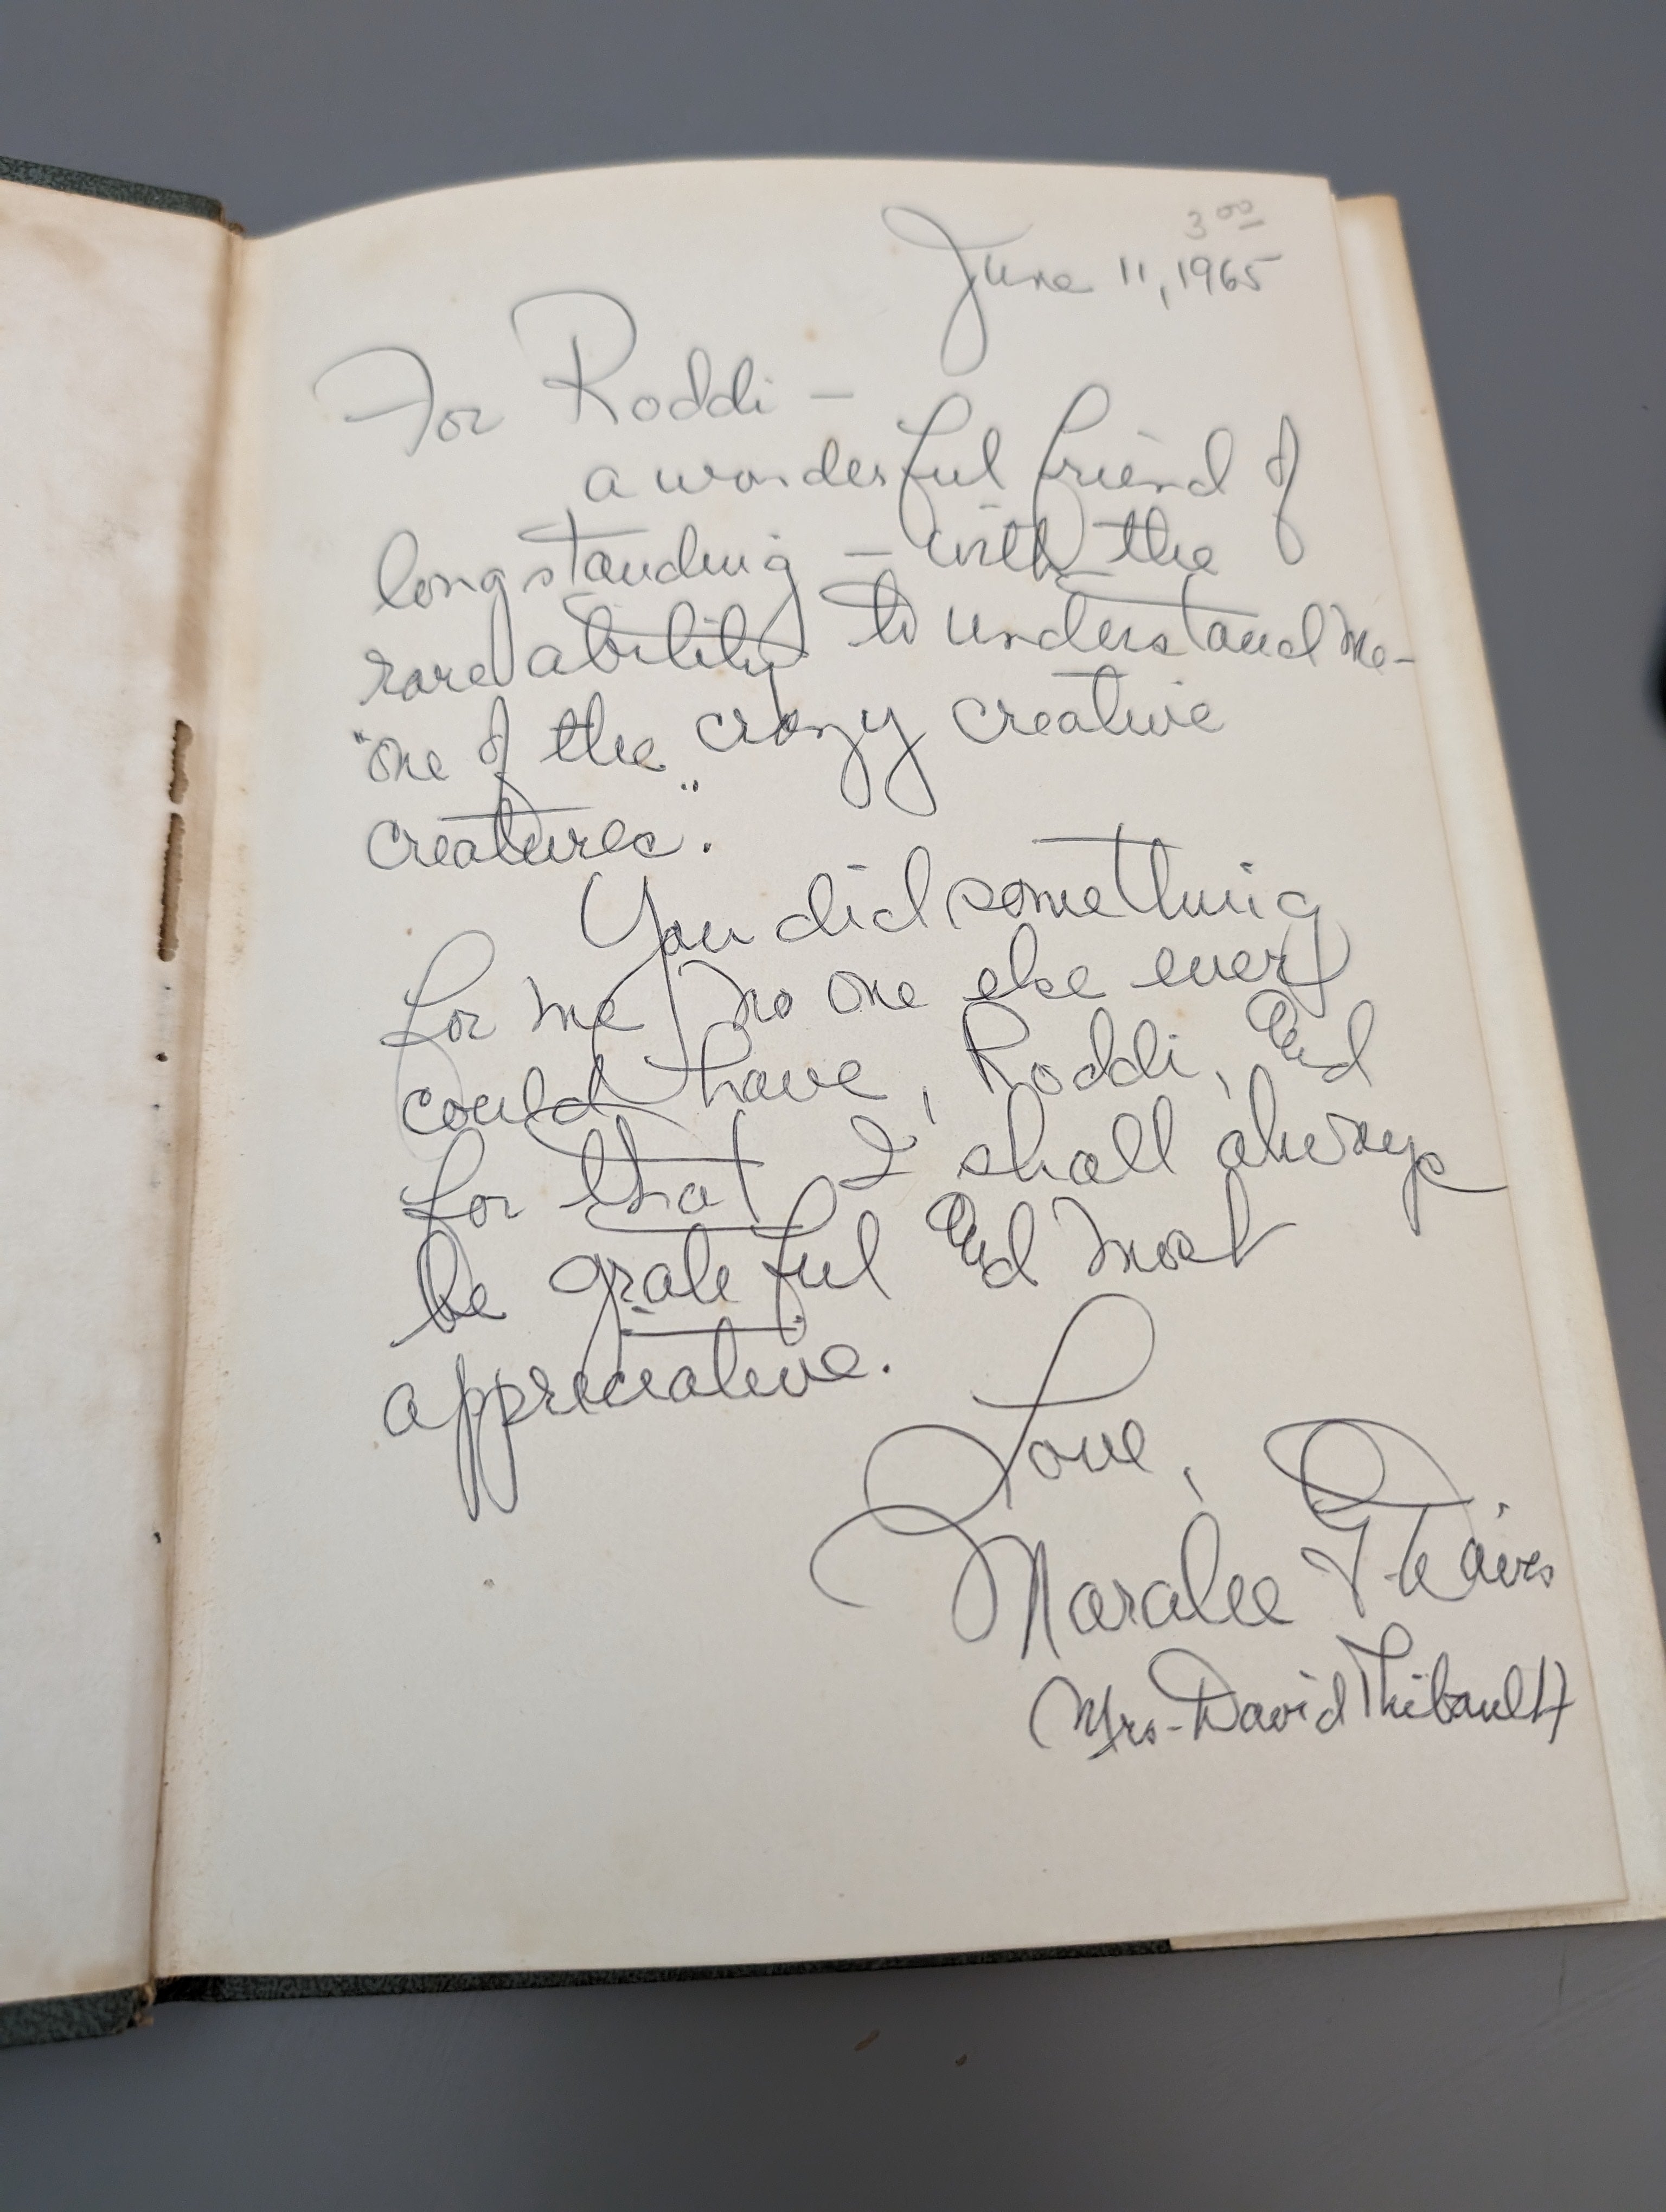 3 00
June 11, 1965
For Roddi -
a wonderful friend of
long standing - with the
rare ability to understand me-
"one of the crazy creative
creatures".
You did something
for me no one else ever
could have, Roddi, and
for that I shall always
be grateful and most
appreciative.
Love,
Maralee
Mrs. David Thibault